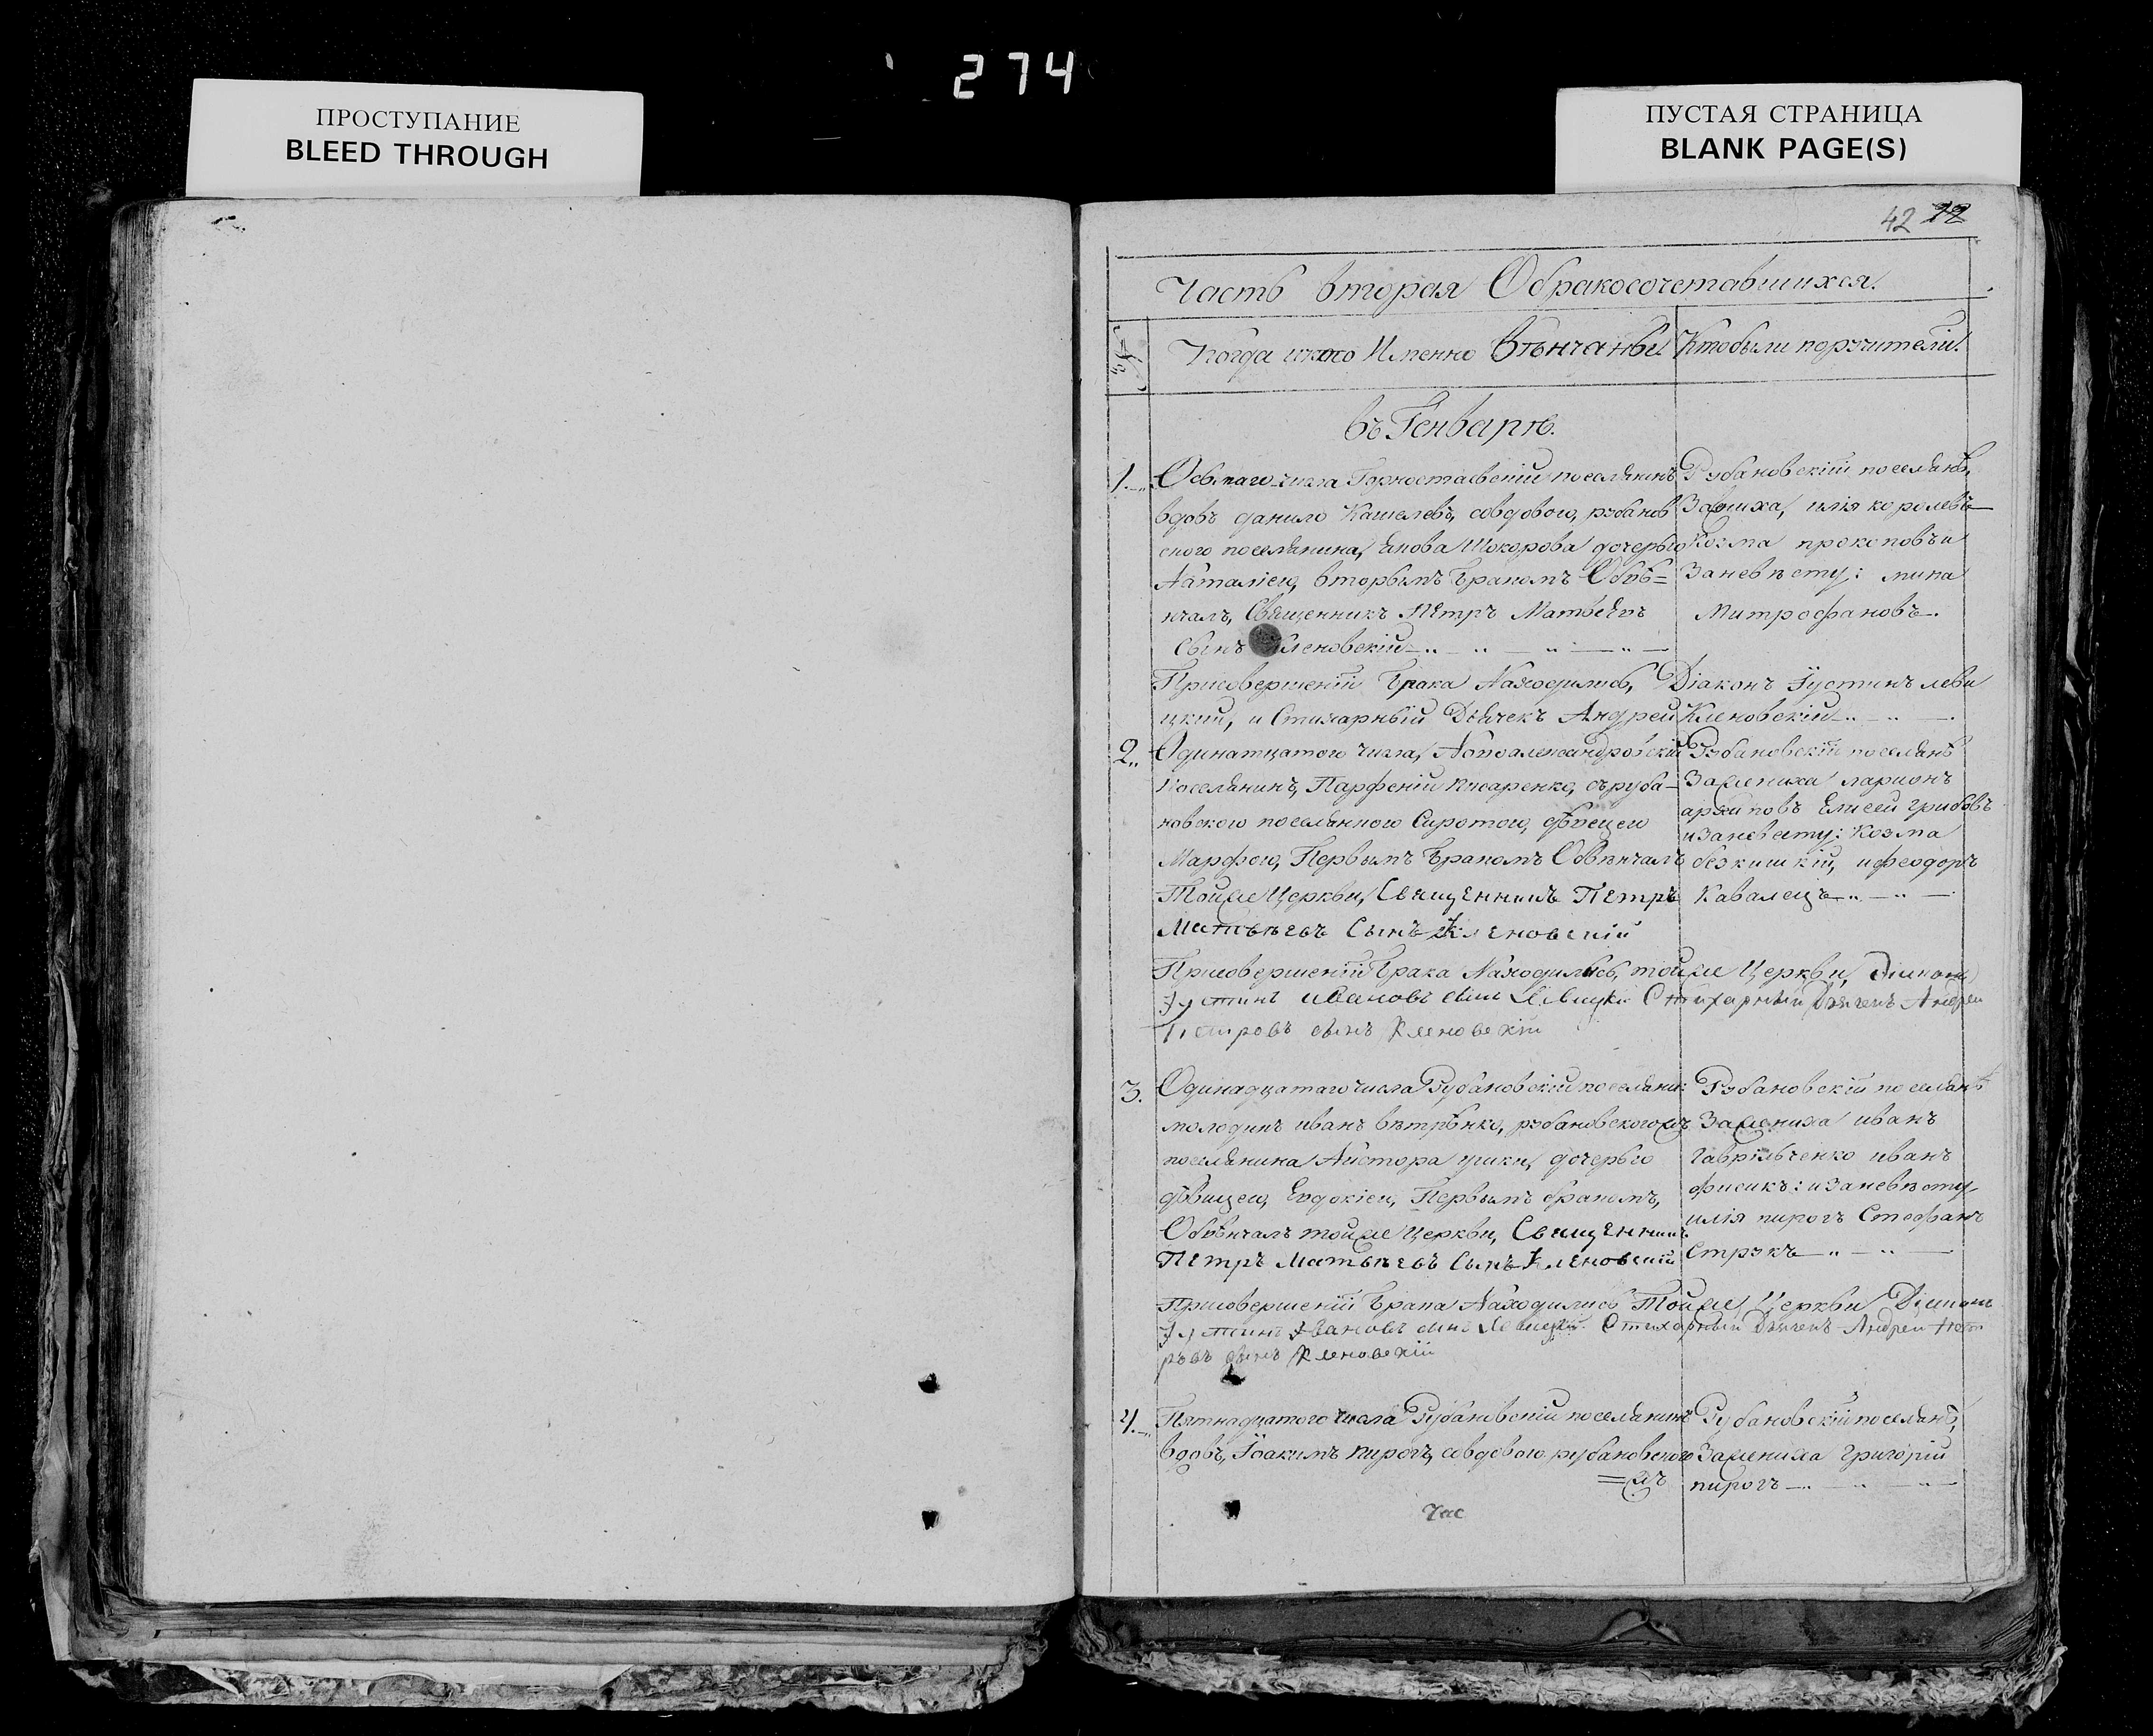 274
ПРОСТУПАНИЕ
BLEED THROUGH
ПУСТАЯ СТРАНИЦА
BLANK PAGE(S)
42 72
Часть вторая Обракосочетавшихся.
№
Когда икого Именно Вѣнчаны.
Ктобыли порꙋчители.
въ Генварѣ.
1.
Осьмаго числа Горностаевскіи поселянинъ
вдовъ данило Кашелевъ, совдовою, рꙋбанов
ского поселянина, Якова дочерью
Наталіею, вторымъ бракомъ Обвѣ=
нчалъ, Священникъ Пётръ Матвѣевъ
Сынъ Кленовскій
Рꙋбановскіи поселянѣ,
Зажениха, илія королевъ
Козма прокоповъ и
Заневѣсту: мина
Митрофановъ.
Присовершеніи Брака Находились, Діаконъ Іустинъ леви
цкий, и Стихарный Дьячекъ Андрей Кленовскій
2.
Одинатцатого числа, Новоалександровскіи
Поселянинъ, Парфеній Писаренко, съруба-
новского поселянного Сиротою, дѣвицею
Марфою, Первымъ Бракомъ Обвѣнчалъ
Тойже Церкви, Священникъ Петръ
Матвѣевъ Сынъ Кленовскій
Рꙋбановскіи поселянѣ
Зажениха ларионъ
архиповъ Елисей грибовъ
изаневѣсту: Козма
безкишкій, ифеодоръ
Кавалецъ
Присовершеніи Брака Находились, тойже Церкви, Діаконъ
Іустинъ ивановъ сынъ Левицкій Стихарный Дьячекъ Андреи
Петровъ сынъ Кленовскій
3.
Одинадцатаго числа Рубановскій поселянин:
молодикъ иванъ вѣтрѣнко, рꙋбановскогожъ
поселянина дочерью
дѣвицею, Евдокіею, Первымъ бракомъ,
Обвѣнчалъ тойже Церкви, Священникъ
Петръ Матвѣевъ Сынъ Кленовскій
Рꙋбановскіи поселянѣ
Зажениха иванъ
Гаврильченко иванъ
фисикъ: изаневѣсту
илія пирогъ Стефанъ
Стрꙋкъ
Присовершеніи Брака Находились Тойже Церкви Діаконъ
Іустинъ Ивановъ сынъ Левицкій Стихарный Дьячекъ Андреи Пет
ровъ сынъ Кленовскій
4.
Пятнадцатого числа Рубановскіи поселянинъ
вдовъ, Іоакимъ пирогъ, совдовою рубановского
=жъ
Рубановскіи поселянѣ,
Зажениха Григорій
пирогъ
Час